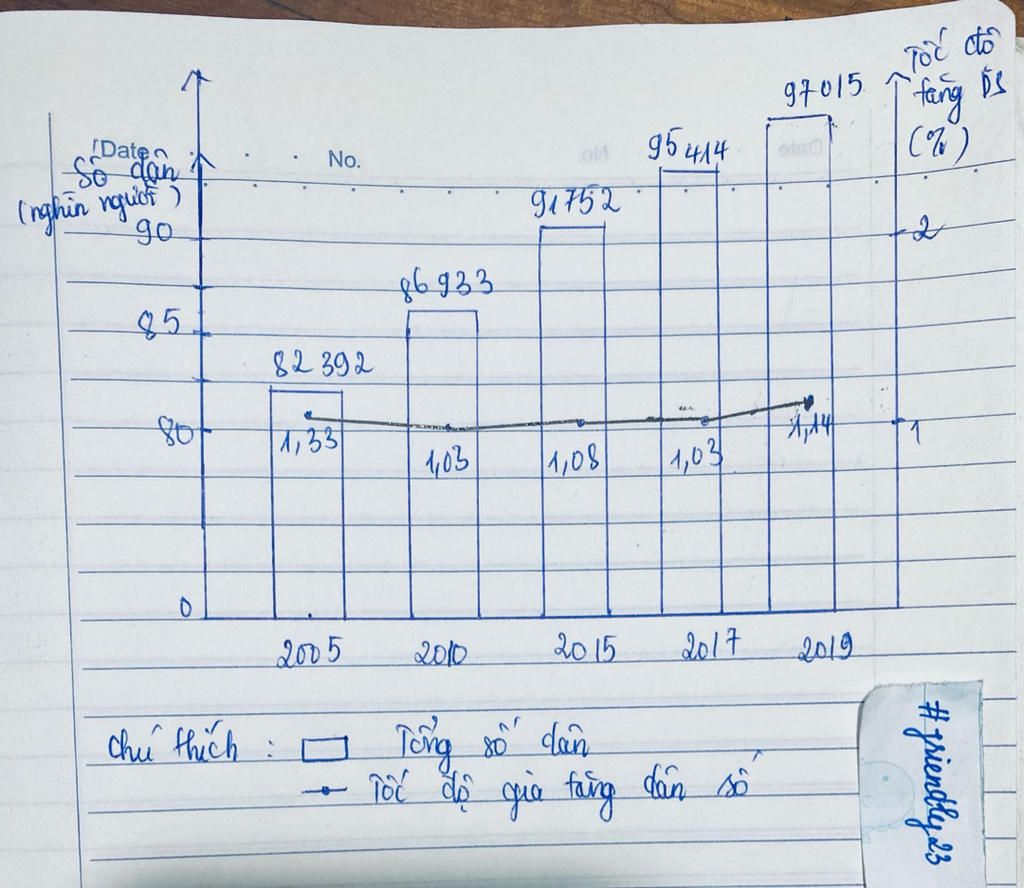 Tốc độ
tăng DS
(%)
Date
No.
Số dân
(nghìn người)
97015
95 414
91752
86 933
82 392
90
85
80
0
2
1
1,33
1,03
1,08
1,03
1,14
2005 2010 2015 2017 2019
Chú thích : Tổng số dân
Tốc độ gia tăng dân số
#griendly23